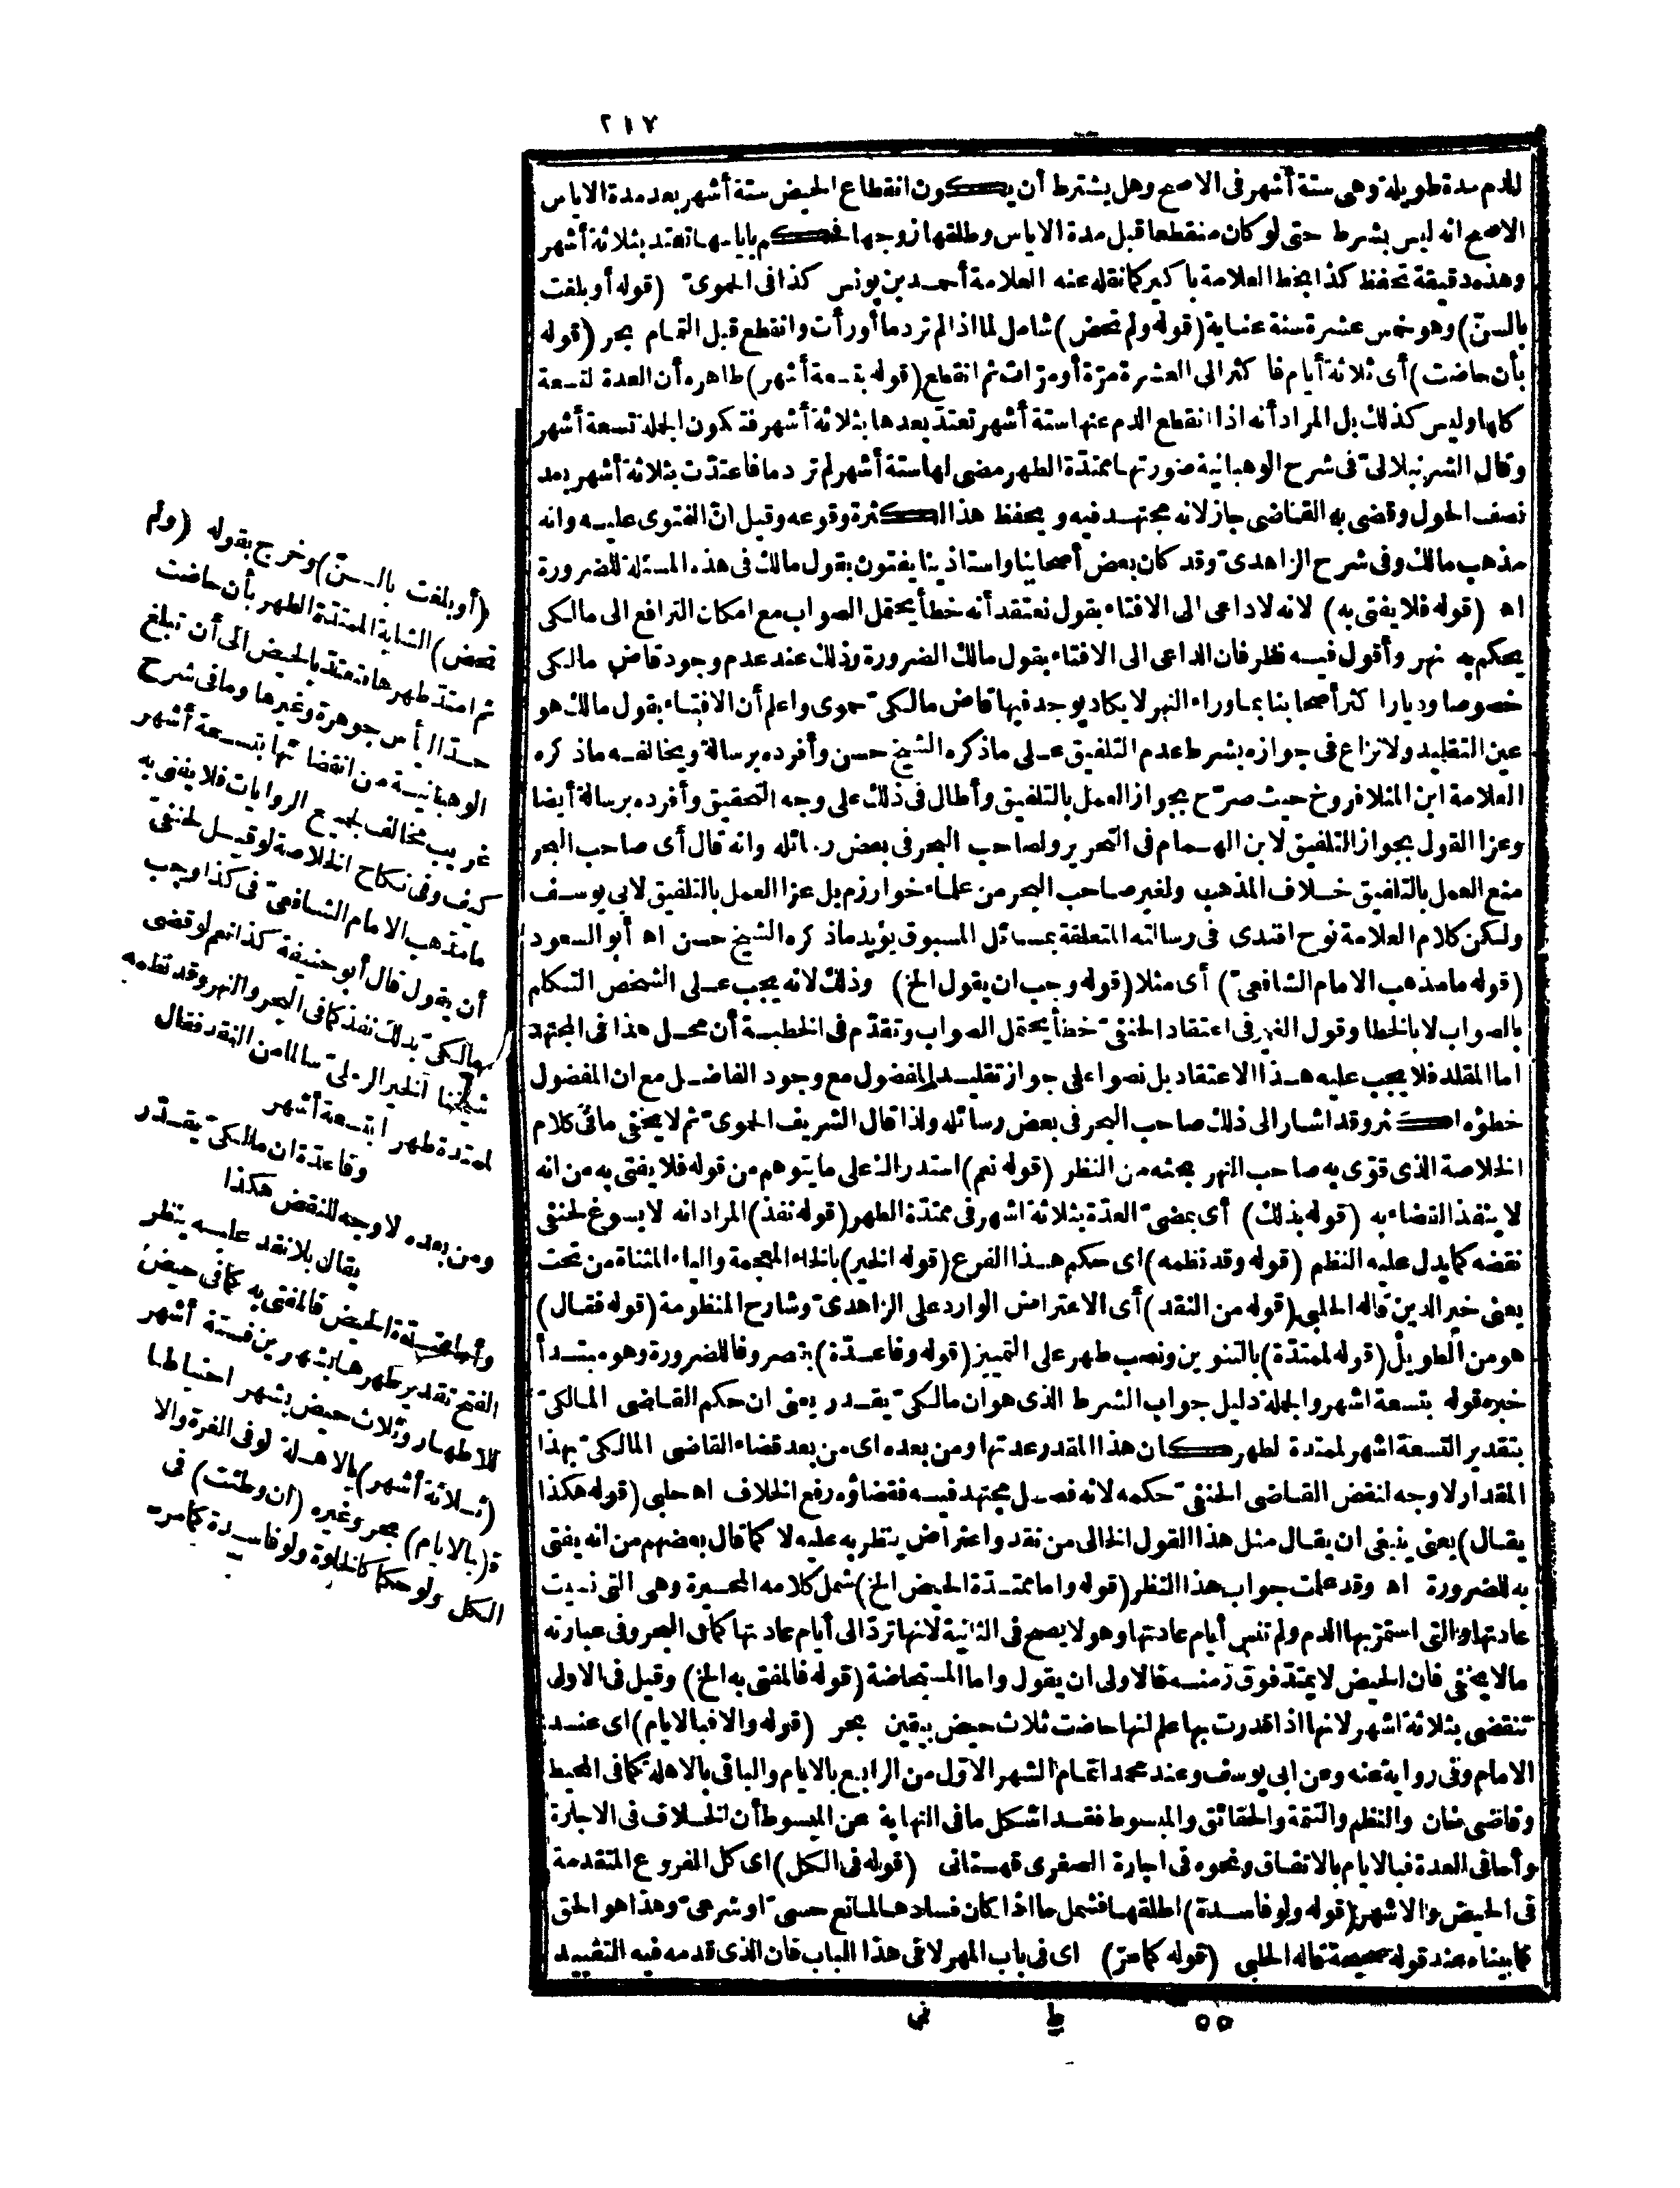 ٢١٧
للدم مدة طويلة وهى ستة أشهر فى الاصح وهل يشترط أن يكون انقطاع الحيض ستة أشهر بعد مدة الاياس
الاصح انه ليس بشرط حتى لو كان منقطعا قبل مدة الاياس وطلقها زوجها فحكم باياسها تعتد بثلاثة أشهر
وهذه دقيقة تحفظ كذا بخط العلامة باكير كما نقله عنه العلامة أحمد بن يونس كذا فى الحموى (قوله أو بلغت
بالسنّ) وهو خمس عشرة سنة عناية (قوله ولم تحض) شامل لما اذا لم تر دما أو رأت وانقطع قبل التمام بحر (قوله
بأن حاضت) أى ثلاثة أيام فاكثر الى العشرة مرّة أو مرّات ثم انقطع (قوله بتسعة أشهر) ظاهره أن العدة لتسعة
كلها وليس كذلك بل المراد أنه اذا انقطع الدم عنها ستة أشهر تعتدّ بعدها بثلاثة أشهر فتكون الجملة تسعة أشهر
وقال الشرنبلالىّ فى شرح الوهبانية صورتها ممتدّة الطهر مضى لها ستة أشهر لم تر دما فاعتدّت بثلاثة أشهر بعد
نصف الحول وقضى به القاضى جاز لانه مجتهد فيه ويحفظ هذا لكثرة وقوعه وقيل انّ الفتوى عليه وانه
مذهب مالك وفى شرح الزاهدىّ وقد كان بعض أصحابنا واستاذينا يفتون بقول مالك فى هذه المسئلة للضرورة
اه (قوله فلا يفتى به) لانه لا داعى الى الافتاء بقول نعتقد أنه خطأ يحتمل الصواب مع امكان الترافع الى مالكى
يحكم به نهر وأقول فيه نظر فان الداعى الى الافتاء بقول مالك الضرورة وذلك عند عدم وجود قاض مالكى
خصوصا وديار اكثر أصحابنا بما وراء النهر لا يكاد يوجد فيها قاض مالكىّ حموى واعلم أن الافتاء بقول مالك هو
عين التقليد ولا نزاع فى جوازه بشرط عدم التلفيق على ما ذكره الشيخ حسن وأفرده برسالة ويخالفه ما ذكره
العلامة ابن المنلا فروخ حيث صرّح بجواز العمل بالتلفيق وأطال فى ذلك على وجه التحقيق وأفرده برسالة أيضا
وعزا القول بجواز التلفيق لابن الهمام فى التحرير ولصاحب البحر فى بعض رسائله وانه قال أى صاحب البحر
منع العمل بالتلفيق خلاف المذهب ولغير صاحب البحر من علماء خوارزم بل عزا العمل بالتلفيق لابي يوسف
ولكن كلام العلامة نوح افندى فى رسالته المتعلقة بمسائل المسبوق يؤيد ما ذكره الشيخ حسن اه أبو السعود
(قوله ما مذهب الامام الشافعىّ) أى مثلا (قوله وجب ان يقول الخ) وذلك لانه يجب على الشخص التكلم
بالصواب لا بالخطا وقول الغير فى اعتقاد الحنفىّ خطأ يحتمل الصواب وتقدّم فى الخطبة أن محل هذا فى المجتهد
اما المقلد فلا يجب عليه هذا الاعتقاد بل نصوا على جواز تقليد المفضول مع وجود الفاضل مع ان المفضول
خطؤه اكثر وقد اشار الى ذلك صاحب البحر فى بعض رسائله ولذا قال الشريف الحموىّ ثم لا يخفى ما فى كلام
الخلاصة الذى قوّى به صاحب النهر بحثه من النظر (قوله نعم) استدراك على ما يتوهم من قوله فلا يفتى به من انه
لا ينفذ القضاء به (قوله بذلك) أى بمضىّ العدّة بثلاثة اشهر فى ممتدّة الطهر (قوله نفذ) المراد انه لا يسوغ لحنفى
نقضه كما يدل عليه النظم (قوله وقد نظمه) اى حكم هذا الفرع (قوله الخير) بالخاء المعجمة والياء المثناة من تحت
يعنى خير الدين قاله الحلبى (قوله من النقد) أى الاعتراض الوارد على الزاهدىّ وشارح المنظومة (قوله فقال)
هو من الطويل (قوله لممتدّة) بالتنوين ونصب طهر على التمييز (قوله وفا عدّة) بقصر وفا للضرورة وهو مبتدأ
خبره قوله بتسعة اشهر والجملة دليل جواب الشرط الذى هو ان مالكىّ يقدر يعنى ان حكم القاضى المالكىّ
بتقدير التسعة اشهر لممتدة لطهر كان هذا المقدر عدتها ومن بعده اى من بعد قضاء القاضى المالكىّ بهذا
المقدار لا وجه لنقض القاضى الحنفىّ حكمه لانه فصل مجتهد فيه فقضاؤه رفع الخلاف اه حلبى (قوله هكذا
يقال) يعنى ينبغى ان يقال مثل هذا القول الخالى من نقد واعتراض ينظر به عليه لا كما قال بعضهم من انه يفتى
به للضرورة اه وقد علمت جواب هذا النظر (قوله واما ممتدّة الحيض الخ) شمل كلامه المحيرة وهى التى نسيت
عادتها والتى استمرّ بها الدم ولم تنس أيام عادتها وهو لا يصح فى الثانية لانها تردّ الى أيام عادتها كما فى البحر وفى عبارته
ما لا يخفى فان الحيض لا يمتدّ فوق زمنه فالاولى ان يقول واما المستحاضة (قوله فالمفتى به الخ) وقيل فى الاولى
تنقضى بثلاثة اشهر لانها اذا قدرت بها علم انها حاضت ثلاث حيض بيقين بحر (قوله والا فبالايام) اى عند
الامام وفى رواية عنه وعن ابى يوسف وعند محمد اتمام الشهر الاوّل من الرابع بالايام والباقى بالاهلة كما فى المحيط
وقاضى خان والنظم والتتمة والحقائق والمبسوط فقد اشكل ما فى النهاية عن المبسوط أن الخلاف فى الاجارة
وأما فى العدة فبالايام بالاتفاق ونحوه فى اجارة الصغرى قهستانى (قوله فى الكل) اى كل الفروع المتقدمة
فى الحيض والاشهر (قوله ولو فاسدة) اطلقها فشمل ما اذا كان فسادها لمانع حسىّ او شرعىّ وهذا هو الحق
كما بيناه عند قوله صحيحة قاله الحلبى (قوله كما مرّ) اى فى باب المهر لا فى هذا الباب فان الذى قدمه فيه التقييد
٥٥ ط نى
(أو بلغت بالسنّ) وخرج بقوله (ولم
تحض) الشابة الممتدّة الطهر بأن حاضت
ثم امتدّ طهرها فتعتدّ بالحيض الى أن تبلغ
حدّ اليأس جوهرة وغيرها وما فى شرح
الوهبانية من انقضائها بتسعة أشهر
غريب مخالف لجميع الروايات فلا يفتى به
كيف وفى نكاح الخلاصة لو قيل لحنفىّ
ما مذهب الامام الشافعىّ فى كذا وجب
أن يقول قال أبو حنيفة كذا نعم لو قضى
مالكىّ بذلك نفذ كما فى البحر والنهر وقد نظمه
شيخنا الخير الرملىّ سالما من النقد فقال
لممتدة طهرا بتسعة أشهر
وفا عدّة ان مالكىّ يقدّر
ومن بعده لا وجه للنقض هكذا
يقال بلا نقد عليه ينظر
وأما ممتدّة الحيض فالمفتى به كما فى حيض
الفتح تقدير طهرها بشهرين فستة أشهر
للاطهار وثلاث حيض بشهر احتياطا
(ثلاثة أشهر) بالاهلة لو فى الغرة والا
فـ(بالايام) بحر وغيره (ان وطئت) فى
الكل ولو حكما كالخلوة ولو فاسدة كما مرّ